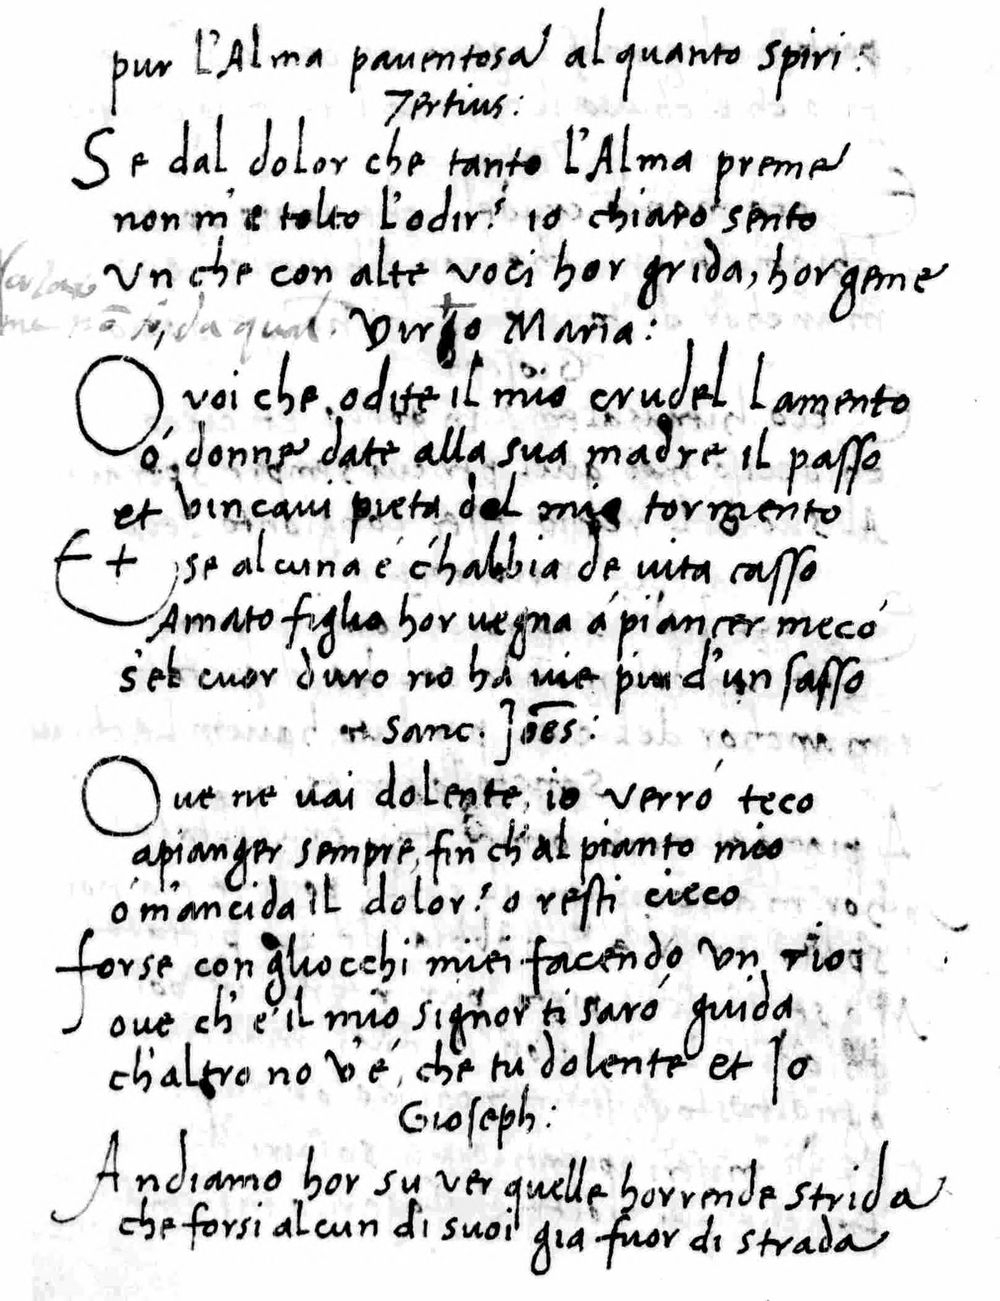 pur l'Alma pauentosa alquanto spiri.
Tertius:
Se dal dolor che tanto l'Alma preme
non m'e tolto l'odir: io chiaro sento
Vn che con alte voci hor grida, hor geme
Virgo Maria:
O voi che odite il mio crudel lamento
ó donne date alla sua madre il passo
et vincaui pietá del mio tormento
Et se alcuna é c'habbia de vita casso
Amato figlio hor uegna á pianger meco
s'el cuor duro no ha uie piu d'un sasso
Sanc. Joēs:
Oue ne uai dolente, io verró teco
a pianger sempre, fin ch'al pianto mio
ó m'ancida il dolor: o resti cieco
forse con gliocchi miei facendo Vn rio
oue ch'é il mio signor ti saró guida
ch'altro no v'é, che tu dolente et Io
Gioseph:
Andiamo hor su ver quelle horrende strida
che forsi alcun di suoi gia fuor di strada